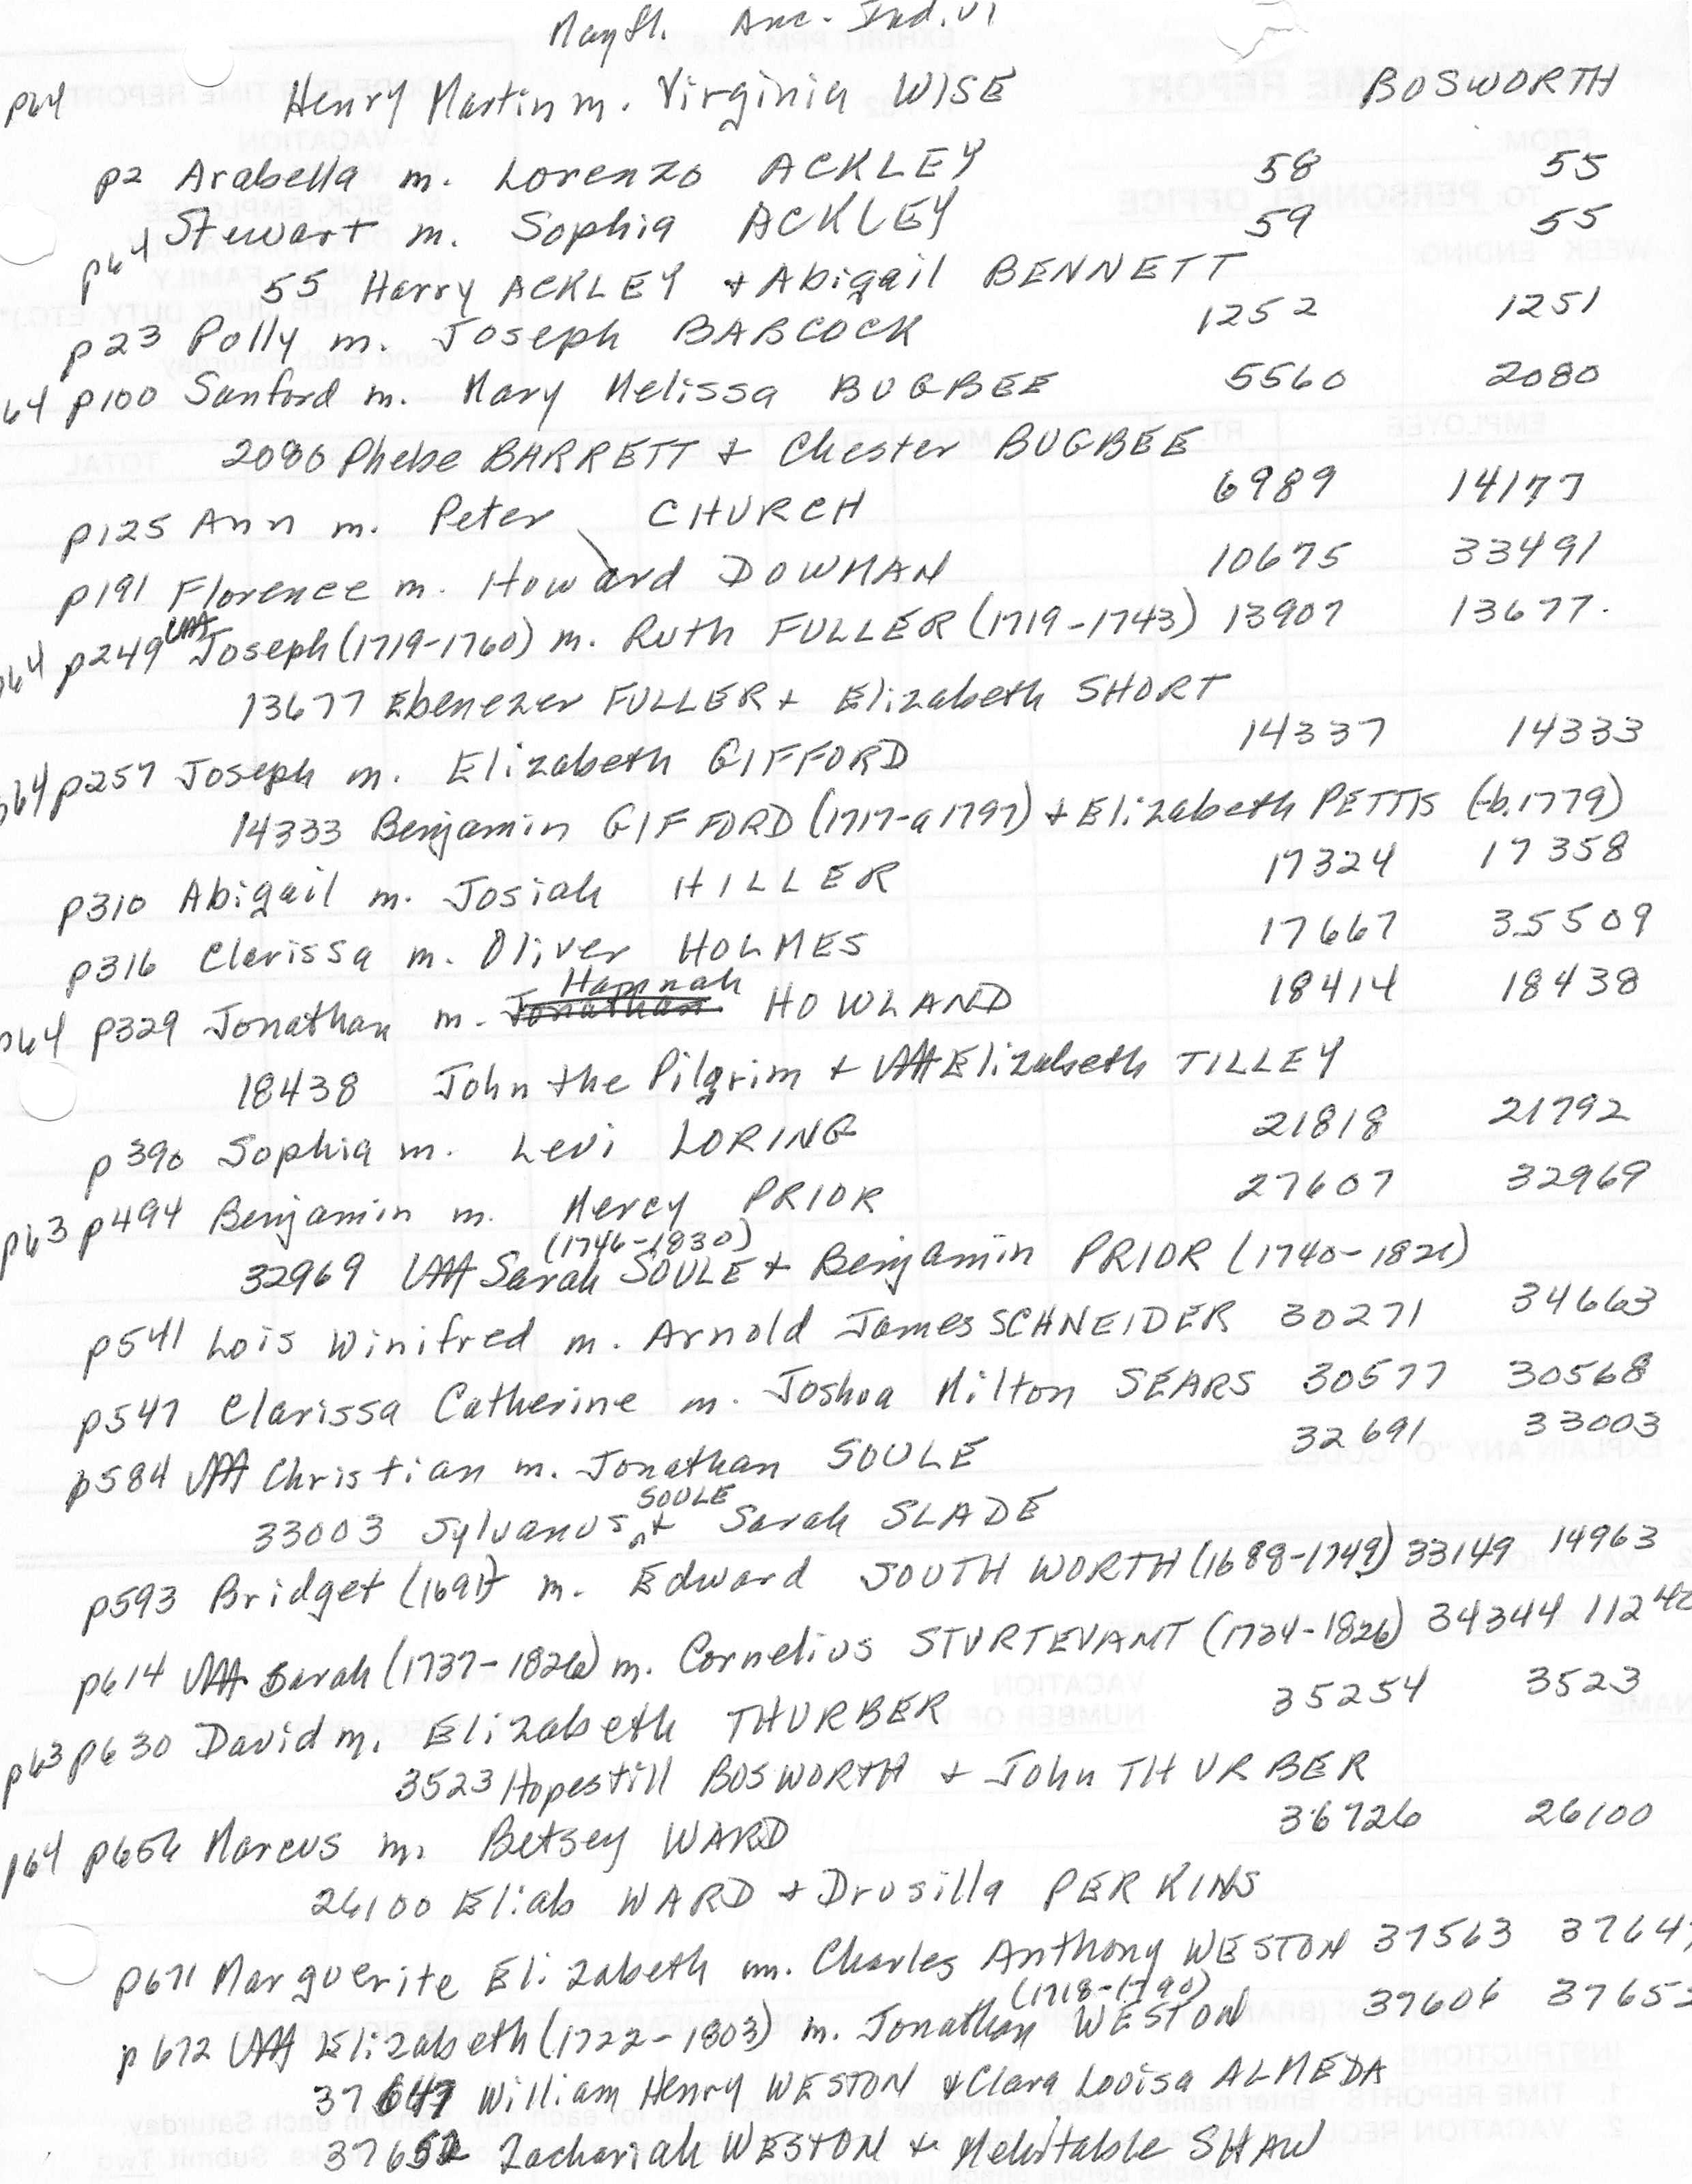 Mayfl. Anc. Ind. V1
p64 Henry Martin m. Virginia WISE BOSWORTH
p2 Arabella m. Lorenzo ACKLEY 58 55
p64 Stewart m. Sophia ACKLEY 59 55
55 Harry ACKLEY + Abigail BENNETT
p23 Polly m. Joseph BABCOCK 1252 1251
64 p100 Sanford m. Mary Melissa BUGBEE 5560 2080
2080 Phebe BARRETT + Chester BUGBEE
p125 Ann m. Peter CHURCH 6989 14177
p191 Florence m. Howard DOWMAN 10675 33491
p64 p249 Joseph (1719-1760) m. Ruth FULLER (1719-1743) 13907 13677.
13677 Ebenezer FULLER + Elizabeth SHORT
p64 p257 Joseph m. Elizabeth GIFFORD 14337 14333
14333 Benjamin GIFFORD (1717-a1797) + Elizabeth PETTIS (-b.1779)
p310 Abigail m. Josiah HILLER 17324 17358
p316 Clarissa m. Oliver HOLMES 17667 35509
p64 p329 Jonathan m. Jonathan Hannah HOWLAND 18414 18438
18438 John the Pilgrim + Elizabeth TILLEY
p390 Sophia m. Levi LORING 21818 21792
p63 p494 Benjamin m. Mercy PRIOR 27607 32969
32969 Sarah (1746-1830) SOULE + Benjamin PRIOR (1740-1821)
p541 Lois Winifred m. Arnold James SCHNEIDER 30271 34663
p547 Clarissa Catherine m. Joshua Milton SEARS 30577 30568
p584 Christian m. Jonathan SOULE 32691 33003
33003 Sylvanus SOULE + Sarah SLADE
p593 Bridget (1691) m. Edward SOUTHWORTH (1688-1749) 33149 14963
p614 Sarah (1737-1826) m. Cornelius STURTEVANT (1734-1826) 34344 112
p63 p630 David m. Elizabeth THURBER 35254 3523
3523 Hopestill BOSWORTH + John THURBER
p64 p656 Marcus m. Betsey WARD 36726 26100
26100 Eliab WARD + Drusilla PERKINS
p671 Marguerite Elizabeth m. Charles Anthony WESTON 37563 37647
p672 Elizabeth (1722-1803) m. Jonathan (1718-1790) WESTON 37606 37652
37647 William Henry WESTON & Clara Louisa ALMEDA
37652 Zachariah WESTON & Mehitable SHAW